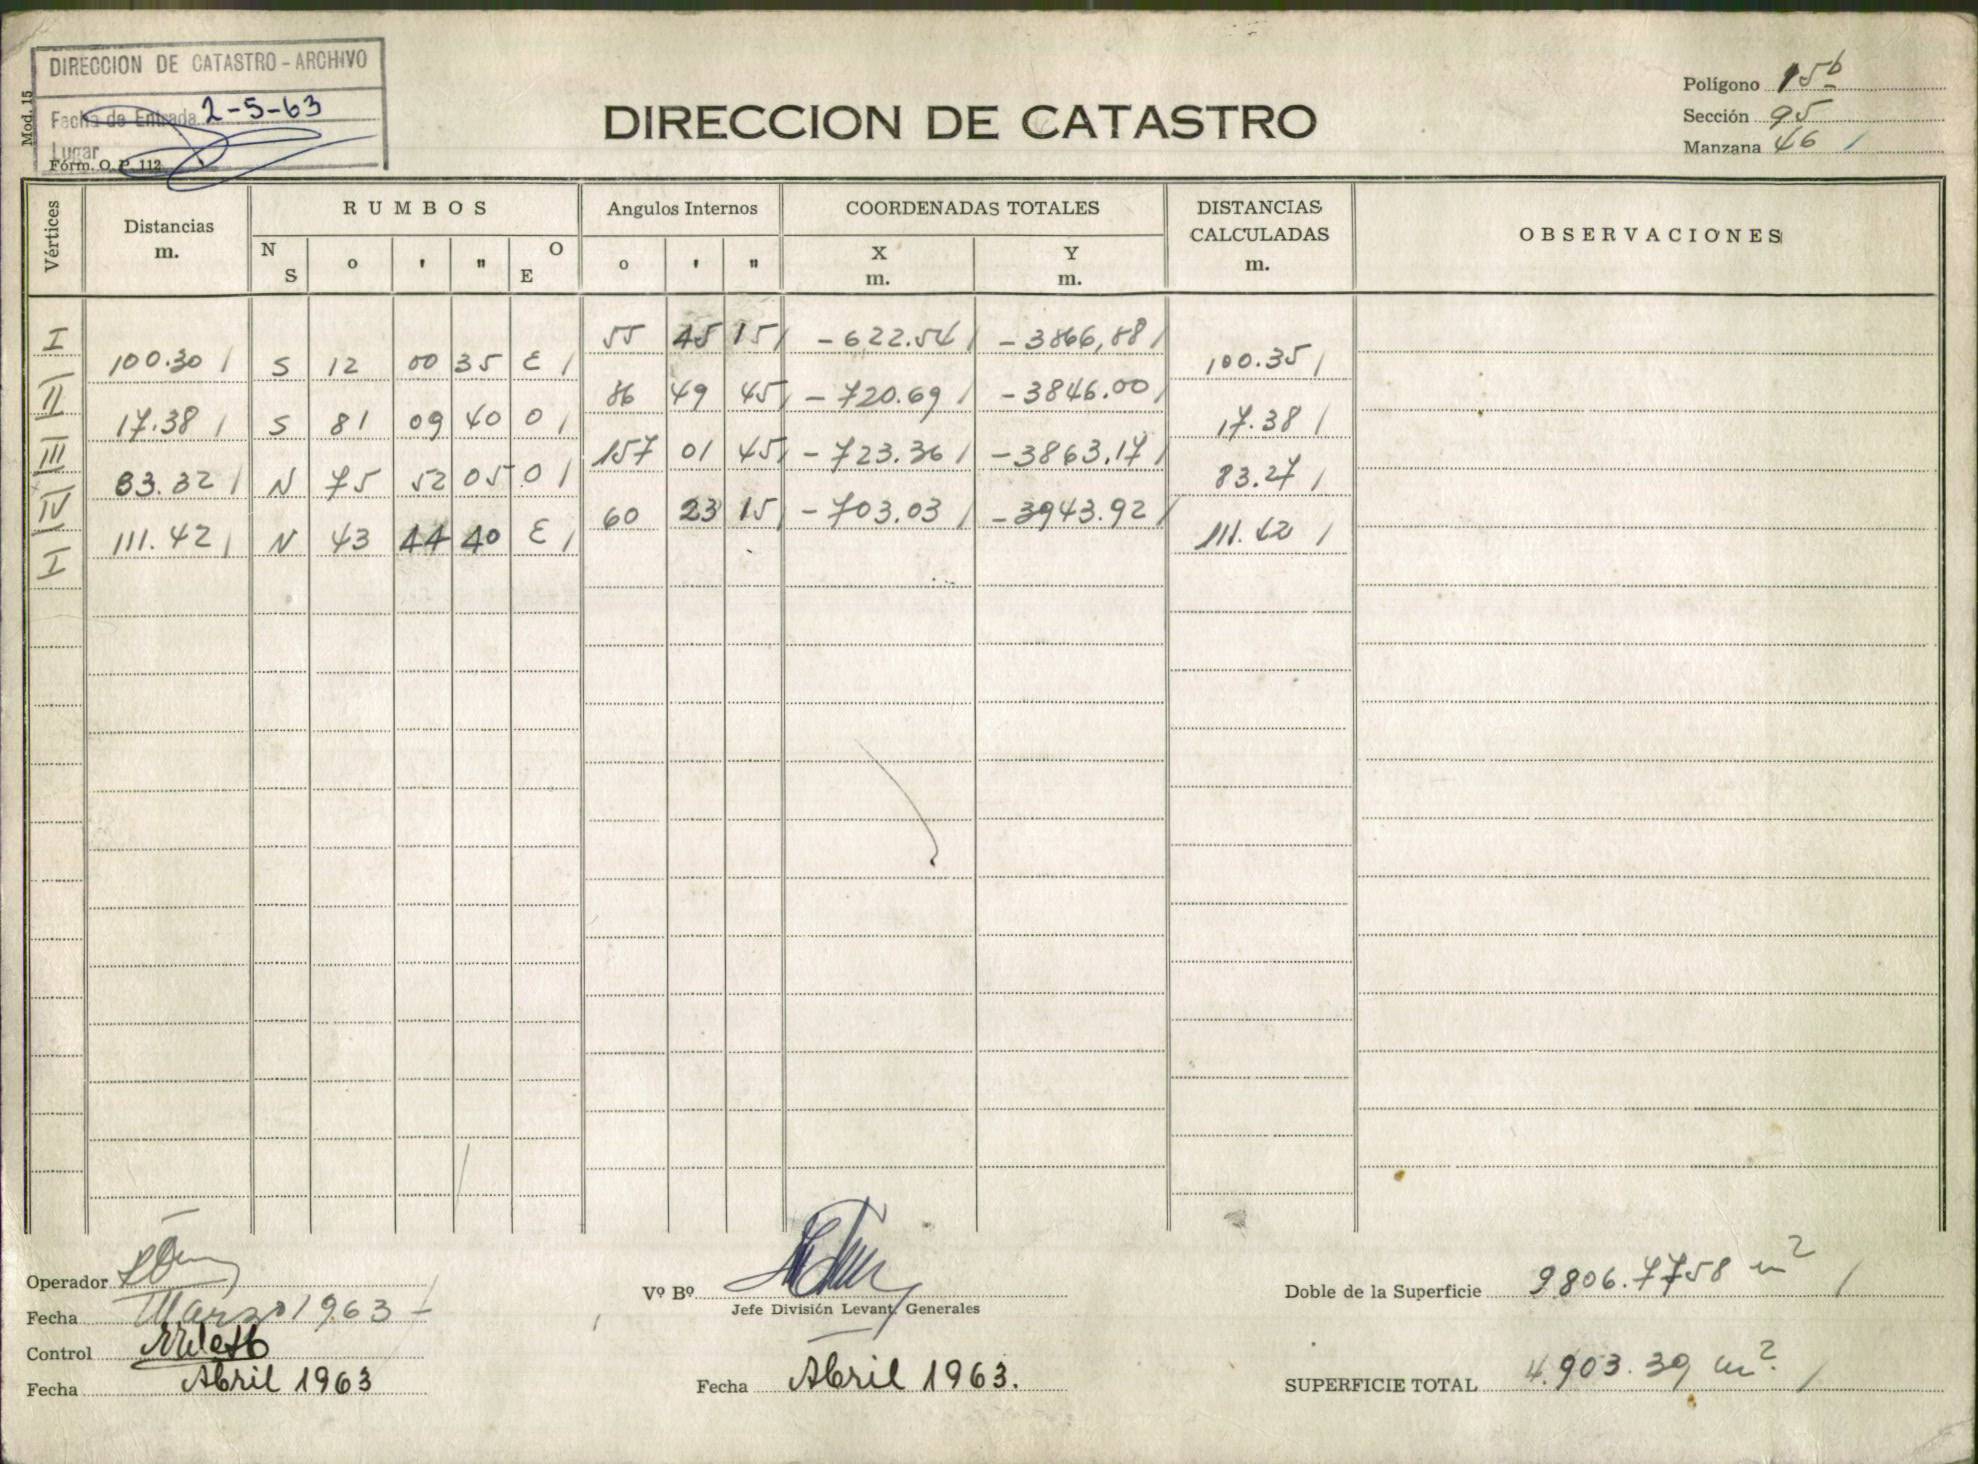 DIRECCION DE CATASTRO - ARCHIVO
Fecha de Entrada 2-5-63
Lugar
Mod. 15
Form. O. P. 112
DIRECCION DE CATASTRO
Polígono 15b
Sección 95
Manzana 46 /
Vértices
Distancias
m.
RUMBOS
N S ° ' " O E
Angulos Internos
° ' "
COORDENADAS TOTALES
X m. Y m.
DISTANCIAS CALCULADAS
m.
OBSERVACIONES
I 55 45 15 / -622.54 / -3866,88 /
100.30 / S 12 00 35 E / 100.35 /
II 86 49 45 / -720.69 / -3846.00 /
17.38 / S 81 09 40 O / 17.38 /
III 157 01 45 / -723.36 / -3863.17 /
83.32 / N 75 52 05 O / 83.27 /
IV 60 23 15 / -703.03 / -3943.92 /
111.42 / N 43 44 40 E / 111.42 /
I
Operador
Fecha Marzo 1963
Control
Fecha Abril 1963
Vº Bº
Jefe División Levant. Generales
Fecha Abril 1963.
Doble de la Superficie 9806.7758 m2 /
SUPERFICIE TOTAL 4.903.39 m2. /